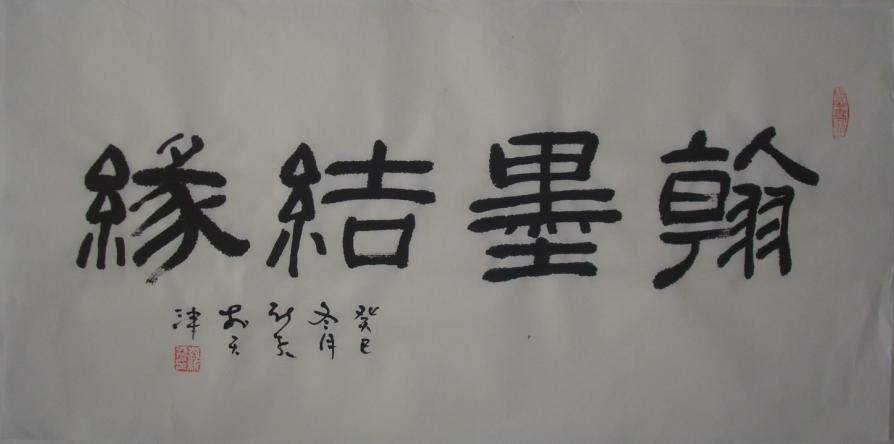 翰墨結緣
癸巳
冬月
於天
津